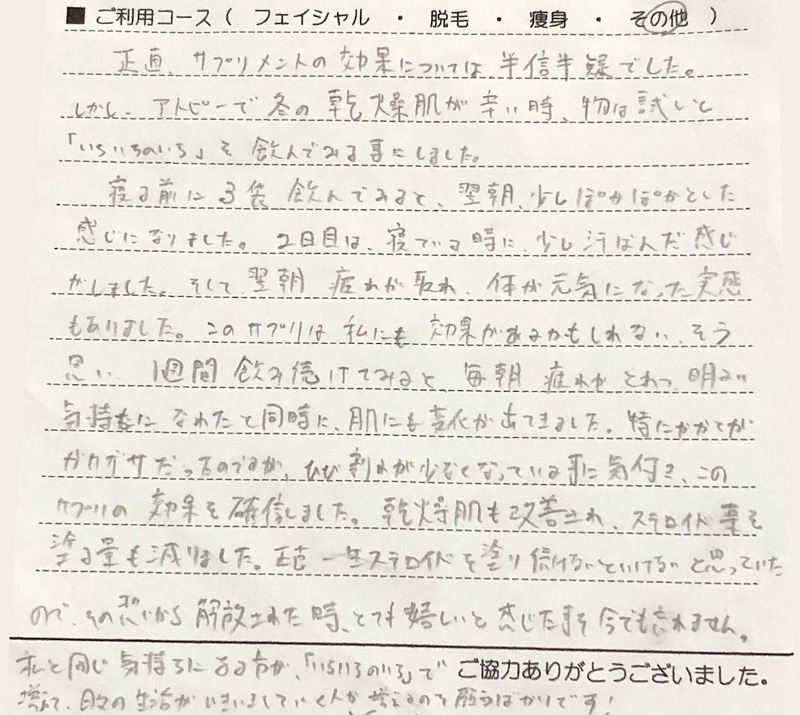 ■ ご利用コース（ フェイシャル ・ 脱毛 ・ 痩身 ・ その他 ）
正直、サプリメントの効果については半信半疑でした。
しかし、アトピーで冬の乾燥肌が辛い時、物は試しと
「いちいちのいち」を飲んでみる事にしました。
寝る前に3袋飲んでみると、翌朝、少しぽかぽかとした
感じになりました。2日目は、寝ている時に、少し汗ばんだ感じ
がしました。そして翌朝 疲れが取れ、体が元気になった実感
もありました。このサプリは私にも効果があるかもしれない、そう
思い、1週間飲み続けてみると毎朝疲れがとれ、明るい
気持ちになれたと同時に、肌にも変化が出てきました。特にかかとが
ガサガサだったのですが、ひび割れが少なくなっている事に気付き、この
サプリの効果を確信しました。乾燥肌も改善され、ステロイド薬を
塗る量も減りました。正直一生ステロイドを塗り続けないといけないと思っていた
ので、その思いから解放された時、とても嬉しいと感じた事を今でも忘れません。
私と同じ気持ちになる方が、「いちいちのいち」で ご協力ありがとうございました。
増えて、日々の生活がいきいきしていく人が増えるのを願うばかりです！